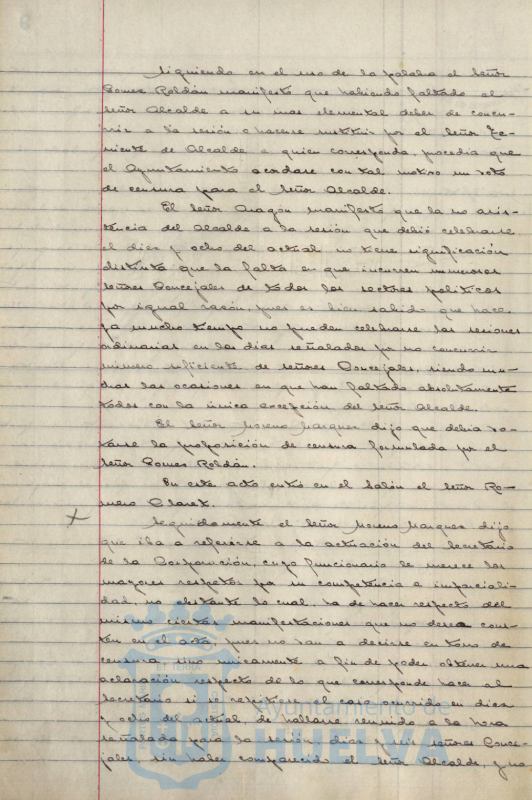 Siguiendo en el uso de la palabra el Señor
Gomez Roldán manifestó que habiendo faltado el
Señor Alcalde a su mas elemental deber de concu-
rrir a la sesión o hacerse sustituir por el Señor Te-
niente de Alcalde a quien corresponda, procedia que
el Ayuntamiento acordase con tal motivo un voto
de censura para el Señor Alcalde.
El Señor Aragón manifestó que la no asis-
tencia del Alcalde a la sesión que debió celebrarse
el diez y ocho del actual no tiene significación
distinta que la falta en que incurren numerosos
señores Concejales de todos los sectores politicos
por igual razón, pues es bien sabido que hace
ya mucho tiempo no pueden celebrarse las sesiones
ordinarias en los dias señalados por no concurrir
número suficiente de señores Concejales, siendo mu-
chas las ocasiones en que han faltado absolutamente
todos con la única excepción del Señor Alcalde.
El Señor Moreno Marquez dijo que debia vo-
tarse la proposición de censura formulada por el
Señor Gomez Roldán.
En este acto entró en el Salón el Señor Ro-
mero Claret.
Seguidamente el Señor Moreno Marquez dijo
que iba a referirse a la actuación del Secretario
de la Corporación, cuyo funcionario le merece los
mayores respetos por su competencia e imparciali-
dad, no obstante lo cual, ha de hacer respecto del
mismo ciertas manifestaciones que no desea cons-
ten en el acta, pues no van a decirse en tono de
censura, sino unicamente a fin de poder obtener una
aclaración respecto de lo que corresponde hacer al
Secretario si se repitiese el caso ocurrido en diez
y ocho del actual, de hallarse reunido a la hora
señalada para la sesión, diez y seis señores Conce-
jales, sin haber comparecido el Señor Alcalde, y no
Ayuntamiento de
HUELVA